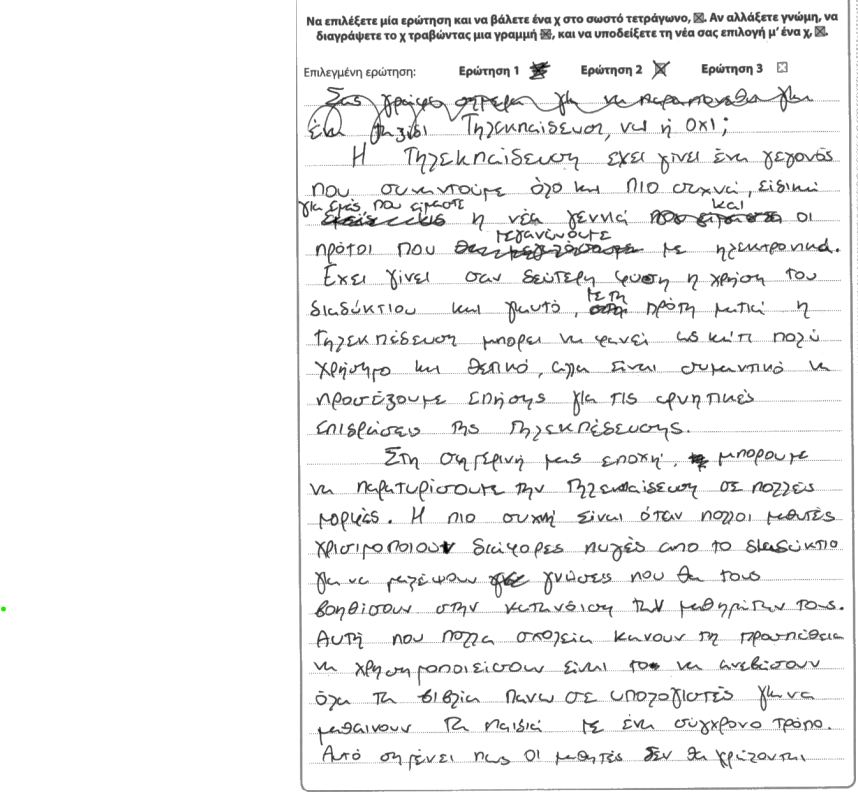 Να επιλέξετε μία ερώτηση και να βάλετε ένα χ στο σωστό τετράγωνο, ☒. Αν αλλάξετε γνώμη, να
διαγράψετε το χ τραβώντας μια γραμμή ☒, και να υποδείξετε τη νέα σας επιλογή μ' ένα χ, ☒.
Επιλεγμένη ερώτηση: Ερώτηση 1 Ερώτηση 2 ☒ Ερώτηση 3 ☒
Σας γράφω σήμερα για να παραπονεθώ για
ένα ταξίδι Τηλεκπαίδευση, ναι ή όχι;
Η Τηλεκπαίδευση έχει γίνει ένα γεγονός
που συναντούμε όλο και πιο συχνά, ειδικά
για εμάς, που είμαστε η νέα γεννιά και οι
πρότοι που μεγανώνουμε με ηλεκτρονικά.
Έχει γίνει σαν δεύτερη φύση η χρήση του
διαδύκτιου και γιαυτό, με τη πρότη ματιά η
Τηλεκπέδευση μπορεί να φανεί ως κάτι πολύ
χρήσημο και θετικό, αλλά είναι συμαντικό να
προσέξουμε επήσης για τις αρνητικές
επιδράσεις της Τηλεκπέδευσης.
Στη σημερινή μας εποχή, μπορουμε
να παρατυρίσουμε την Τηλεκπαίδευση σε πολλές
μορφές. Η πιο συχνή είναι όταν πολλοι μαθητές
χρισιμοποιουν διάφορες πυγές απο το διαδύκτιο
για να μαζέψουν γνώσεις που θα τους
βοηθίσουν στην κατανόιση των μαθημάτων τους.
Αυτή που πολλα σχολεία κανουν τη προσπάθεια
να χρησημοποιείσουν είναι το να ανεβάσουν
όλα τα βιβλία πανω σε υπολογιστές για να
μαθαινουν τα παιδιά με ένα σύγχρονο τρόπο.
Αυτό σημένει πως οι μαθητές δεν θα χριάζονται